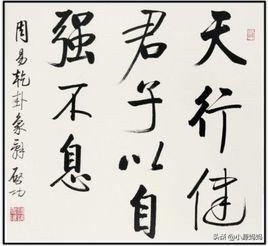 天行健
君子以自
强不息
周易乾卦象辞 启功
头条 @小暖妈妈